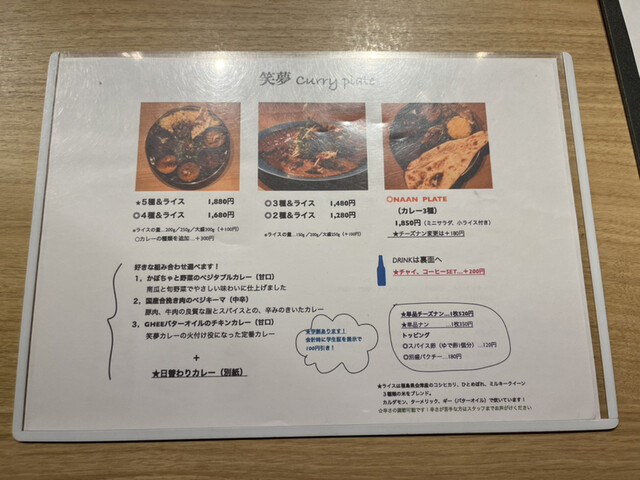 笑夢 Curry plate
★5種&ライス 1,880円
◎4種&ライス 1,680円
※ライスの量…200g/250g/大盛300g(+100円)
○カレーの種類を追加…+300円
◎3種&ライス 1,480円
◎2種&ライス 1,280円
○NAAN PLATE
(カレー3種)
1,850円(ミニサラダ、小ライス付き)
★チーズナン変更は+180円
好きな組み合わせ選べます!
1、かぼちゃと野菜のベジタブルカレー(甘口)
南瓜と旬野菜でやさしい味わいに仕上げました
2、国産合挽き肉のベジキーマ(中辛)
豚肉、牛肉の良質な脂とスパイスとの、辛みのきいたカレー
3、GHEEバターオイルのチキンカレー(甘口)
笑夢カレーの火付け役になった定番カレー
+
★日替わりカレー(別紙)
★学割あります!
会計時に学生証を提示で
100円引き!
DRINKは裏面へ
★チャイ、コーヒーSET…+200円
★単品チーズナン…1枚520円
★単品ナン …1枚350円
トッピング
◎スパイス卵(ゆで卵1個分)…120円
◎別盛パクチー…180円
★ライスは福島県会津産のコシヒカリ、ひとめぼれ、ミルキークイーン
3種類の米をブレンド。
カルダモン、ターメリック、ギー(バターオイル)で炊いています!
☆辛さの調整可能です!辛さが苦手な方はスタッフまでお声がけください